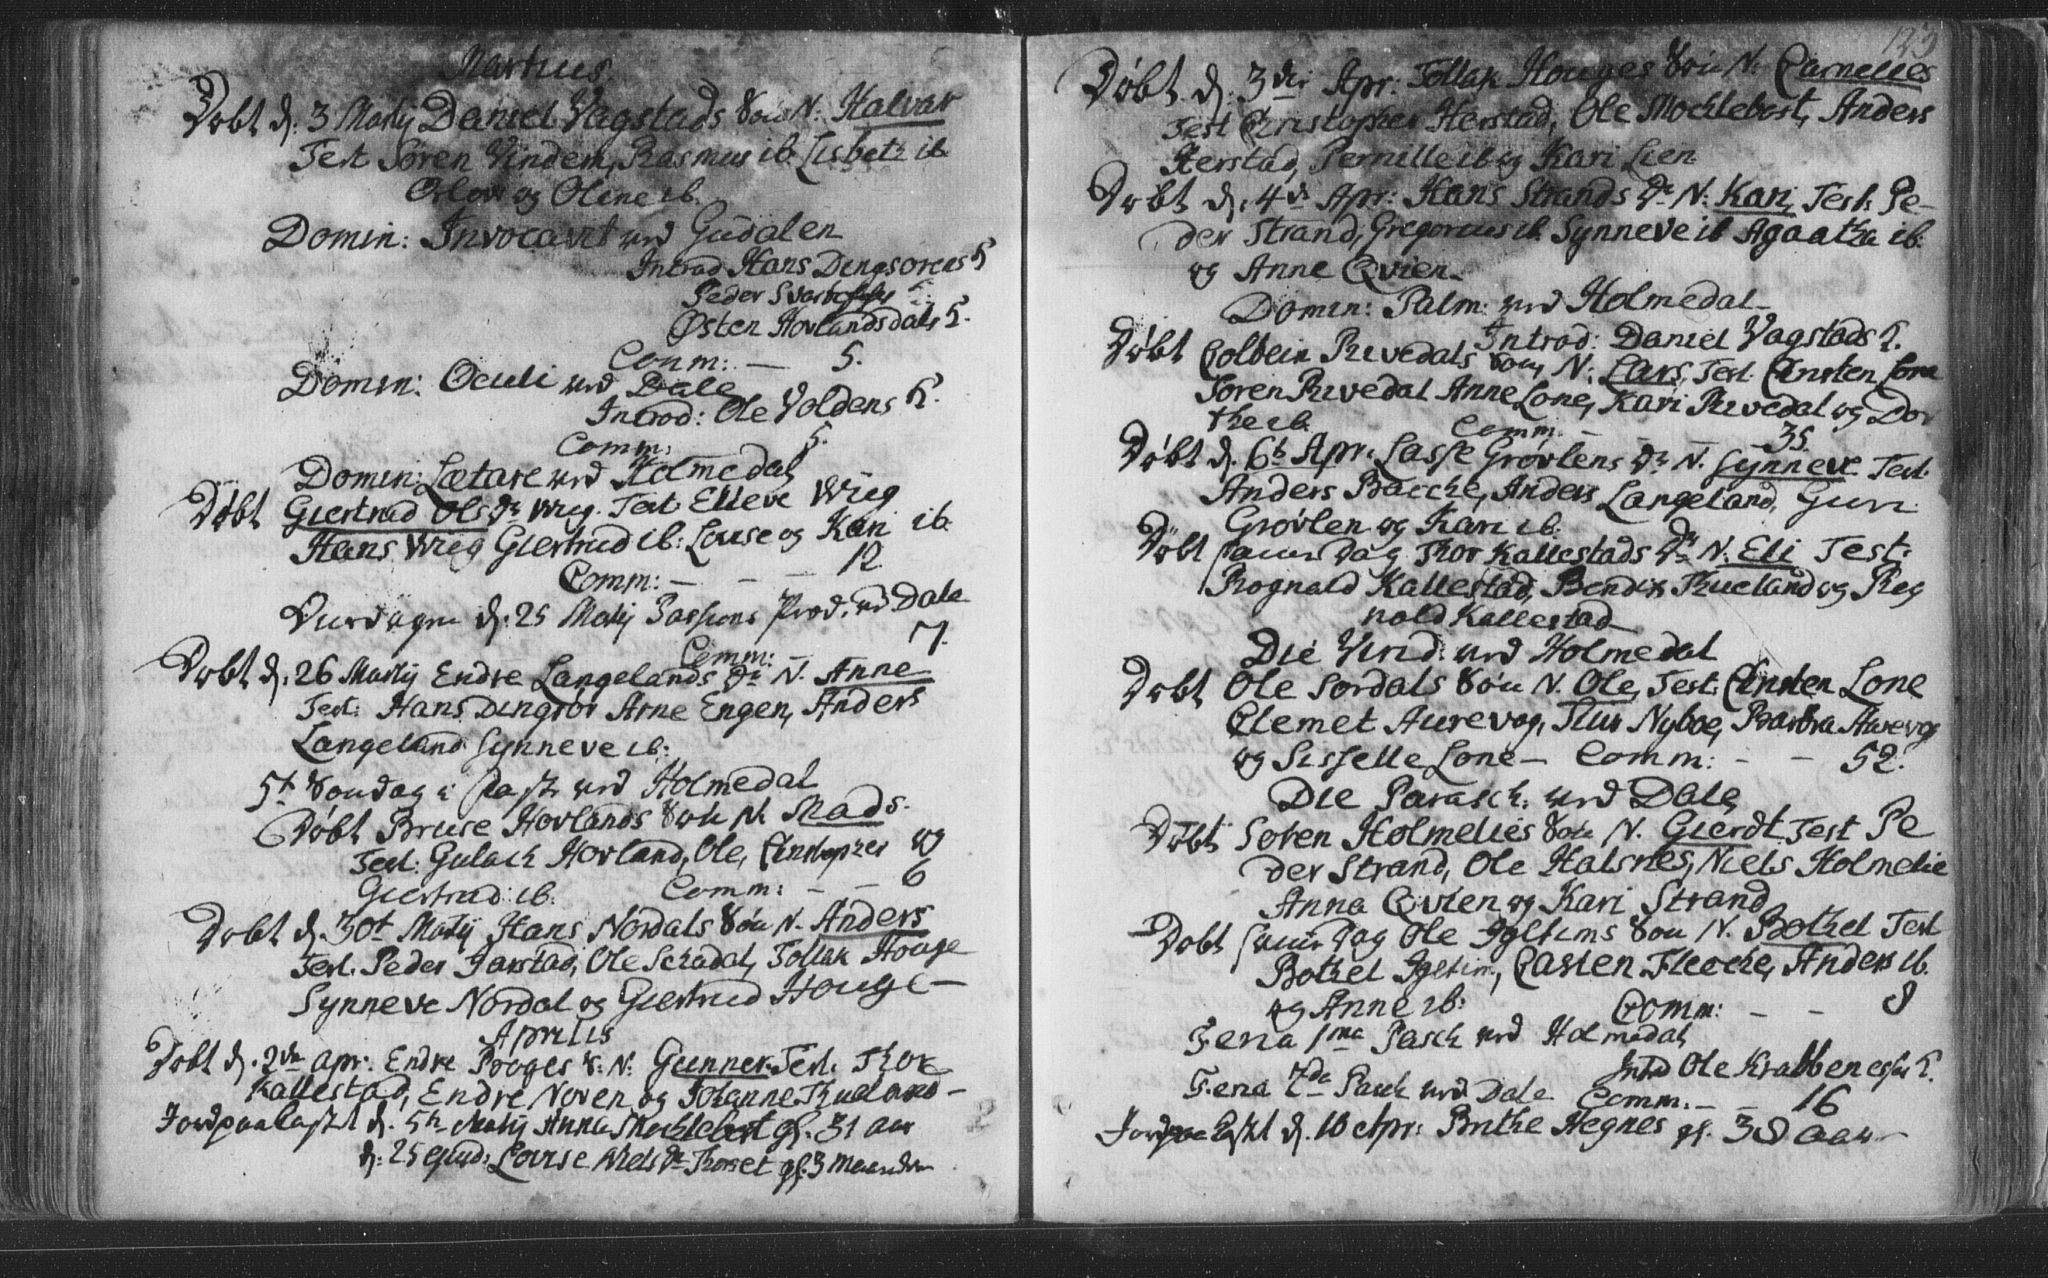 Martius.
Døbt d. 3 Martij Daniel Vagstads Søn N. Halvar
Test Søren Vindem, Rasmus ib. Lisbeth ib.
og Oline ib.
Domin: Invocavit ved Gudalen
Introd Hans Dingsørens h
Peder
Østen Hovlandsdals h.
Comm: — 5.
Domin: Oculi ved Dale
Introd: Ole Voldens h.
Comm: 5.
Domin: Lætare ved Holmedal
Døbt Giertrud Olsdr Wrig. Test Elleve Wrig
Hans Wrig Giertrud ib: Louse og Kari ib.
Comm: — — — 12
d. 25 Martij Passions Præd. ved Dale
Comm: — 7.
Døbt d. 26 Martij Endre Langelands Dr N. Anne
Test: Hans Dingsør Arne Engen, Anders
Langeland Synneve ib:
5t Søndag i Fast ved Holmedal
Døbt Bruse Hovlands Søn N. Mads.
Test: Gulack Hovland, Ole, Christopher og
Giertrud ib. Comm: — — 6
Døbt d. 30t Martij Hans Nordals Søn N. Anders
Test. Peder Jarstad, Ole Schadal, Tollak Houge
Synneve Nordal og Giertrud Houge —
Aprilis
Døbt d. 2den apr: Endre S. N. Gunner. Test. Thor
Kallestad, Endre Noven og Johanne Trueland —
Jordpaakast d. 5te Martij Anna Mochlebost gl. 31 aar
d. 25 ejusd: Lovise Nielsdr Thorset gl. 3 maaneder
123
Døbt d. 3die Apr: Tollak Houges Søn N. Carnelies
Test Christopher Herstad, Ole Mochlebost, Anders
Herstad, Pernille ib og Kari Lien
Døbt d. 4de Apr: Hans Strands Dr N: Kari, Test: Pe-
der Strand, Gregorius ib. Synneve ib Agaatha ib.
og Anne Qvien —
Domin: Palm: ved Holmedal —
Introd: Daniel Vagstads h.
Døbt Colbein Rivedals Søn, N: Lars, Test. Christen Lone
Søren Rivedal Anne Lone, Kari Rivedal og Dor
the ib. Comm. — — — 35.
Døbt d. 6t Apr: Lasse Grøvlens Dr N. Synneve Test.
Anders Bacche, Anders Langeland, Guri
Grøvlen og Kari ib.
Døbt samme Dag Thor Kallestads Dr N. Eli Test:
Rognald Kallestad, Bendix Trueland og Rag
nold Kallestad
Die Virid: ved Holmedal
Døbt Ole Sørdals Søn N. Ole, Test: Christen Lone
Clemet Aurevog, Siur Nyboe, Barbra Aurevog
og Sisselle Lone — Comm: — — 52.
Die Parasch: ved Dale
Døbt Søren Holmelies Søn N. Gierdt Test Pe
der Strand, Ole Halsnes, Niels Holmelie
Anna Qvien og Kari Strand
Døbt samme Dag Ole Igltims Søn N. Bothel Test
Bothel Igltim, Casten Flecche, Anders ib.
og Anne ib: Comm: — — 8
Feria 1ma Pasch ved Holmedal
Introd Ole h.
Feria 2da Pasch ved Dale Comm. — — 16
Jordpaakast d. 10 Apr: Brithe Hegnes gl. 38 aar —